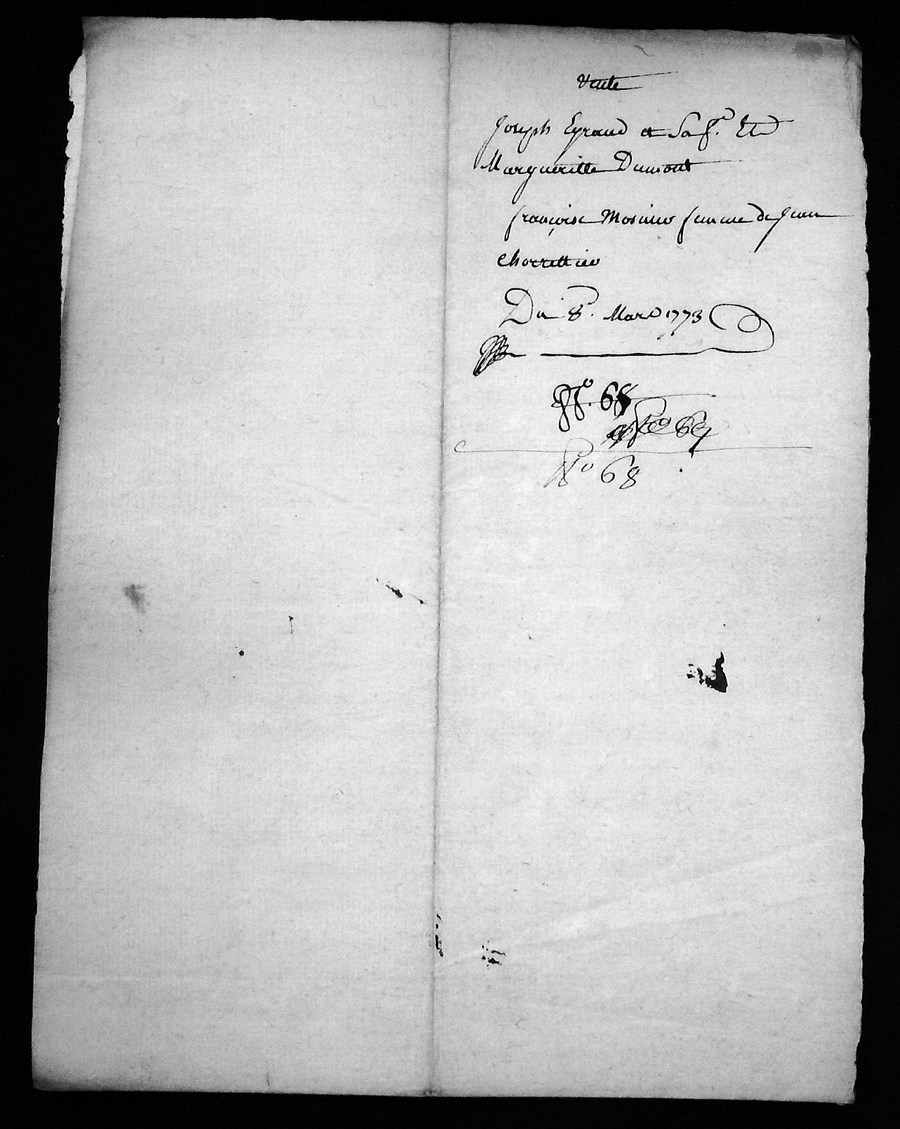 Vente
Joseph Eyraud et Sa f.e Et
Margueritte Dumont
françoise Mosnier femme de Jean
Charrettier
Du 8.e Mars 1773
N.o 68
N.o 68